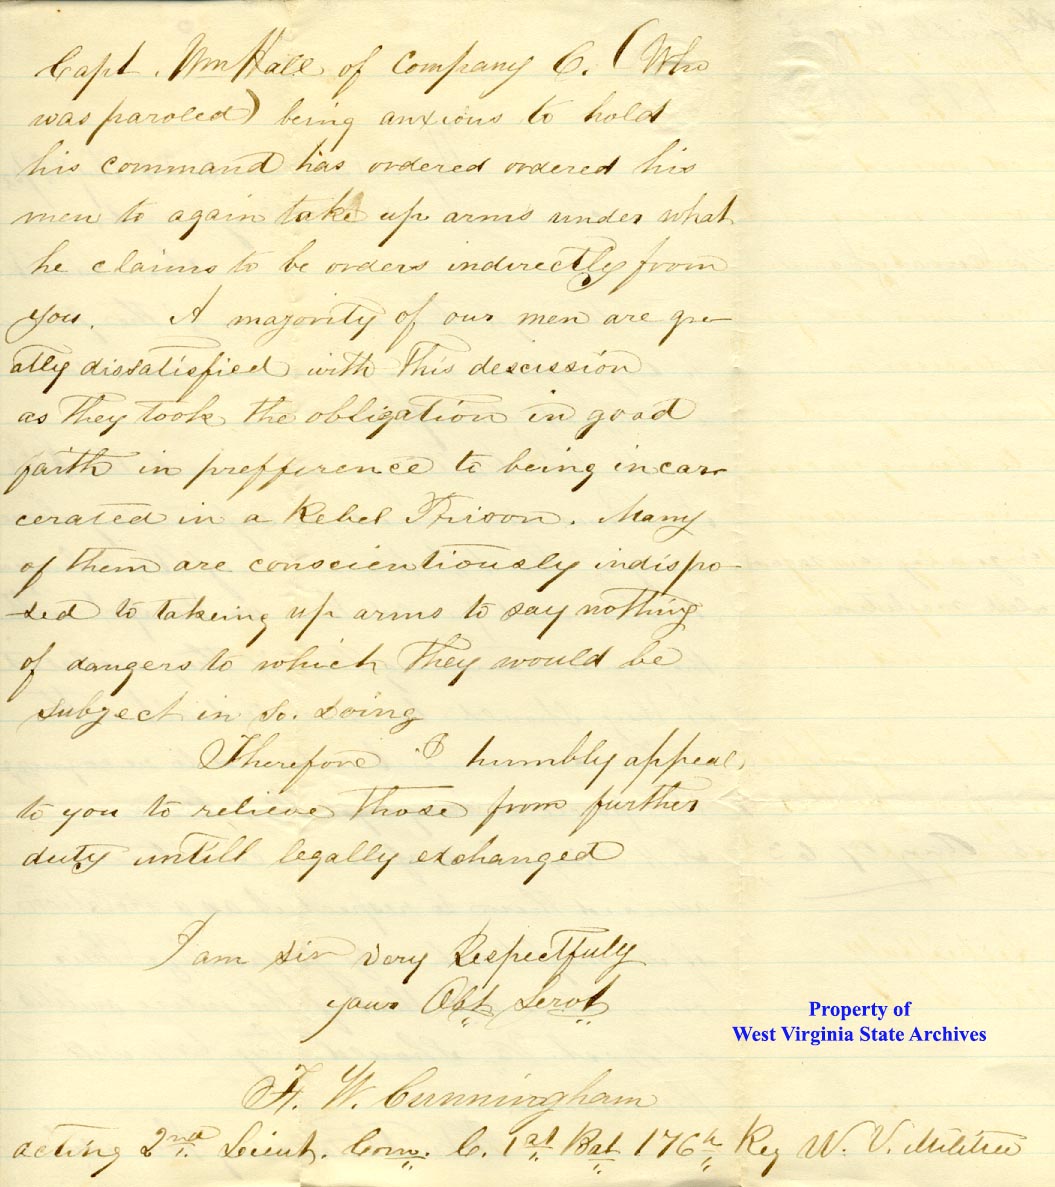 Capt. Wm Hall of Company C. (Who
was paroled) being anxious to hold
his command has ordered ordered his
men to again take up arms under what
he claims to be orders indirectly from
you. A majority of our men are gre-
atly dissatisfied with this descission
as they took the obligation in good
faith in prefference to being incar-
cerated in a Rebel Prison. Many
of them are conscientiously indispo-
-sed to takeing up arms to say nothing
of dangers to which they would be
subject in so. doing
Therefore I humbly appeal,
to you to relieve those from further
duty untill legally exchanged
I am sir very Respectfully
your Obt Servt
Property of
West Virginia State Archives
F. W. Cunningham
acting 2nd Lieut. Com. C. 1st Bat 176th Reg W. V. Militia